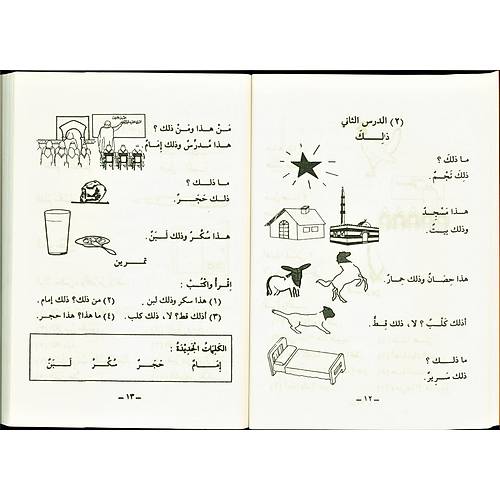 (٢) الدرس الثاني
ذلِـكَ
ما ذلكَ ؟
ذلِكَ نَجْمٌ .
هذا مَسْجِدٌ
وذلكَ بيتٌ .
هذا حِصَانٌ وذلك حِمارٌ .
أذلك كَلْبٌ ؟ لا ، ذلك قِطٌّ .
ما ذلك ؟
ذلك سَرِيرٌ .
ــ ١٢ ــ
مَنْ هذا ومَنْ ذلك ؟
هذا مُدرِّسٌ وذلك إمَامٌ .
ما ذلـك ؟
ذلـك حَجَـرٌ .
هذا سُكَّرٌ وذلك لَبَنٌ .
تمـريـن
اِقرأ واكتُبْ :
(١) هذا سكر وذلك لبن . (٢) من ذلك؟ ذلك إمام .
(٣) أذلك قط؟ لا، ذلك كلب . (٤) ما هذا؟ هذا حجر .
الكَلِمَاتُ الجَدِيْدَةُ :
إِمَامٌ حَجَرٌ سُكَّرٌ لَبَنٌ
ــ ١٣ ــ